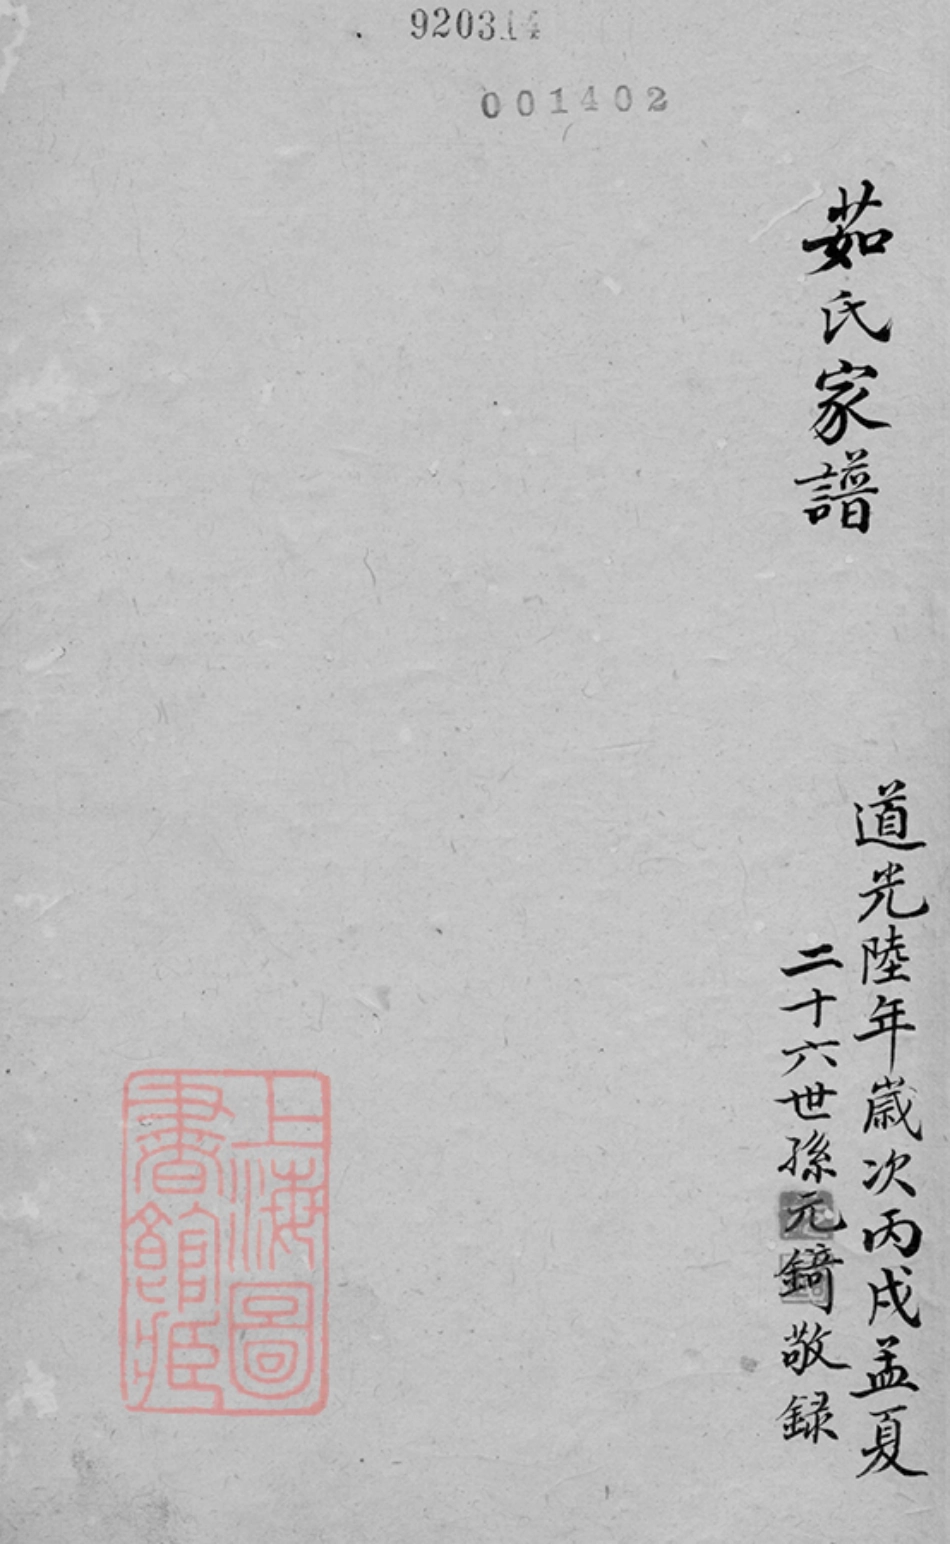 920314
001402
茹氏家譜
道光陸年歲次丙戌孟夏
二十六世孫元鎬敬録
上海圖
書館藏